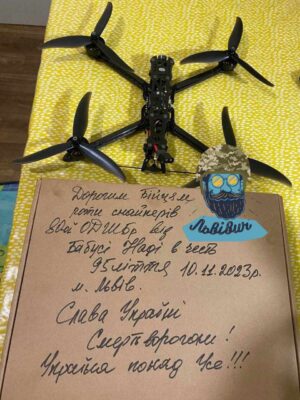 Львівич
Дорогим Бійцям
роти снайперів
80ої ОДШБр від
Бабусі Наді в честь
95ліття 10.11.2023р.
м. Львів.
Слава Україні
Смерть ворогам!
Україна понад Усе!!!